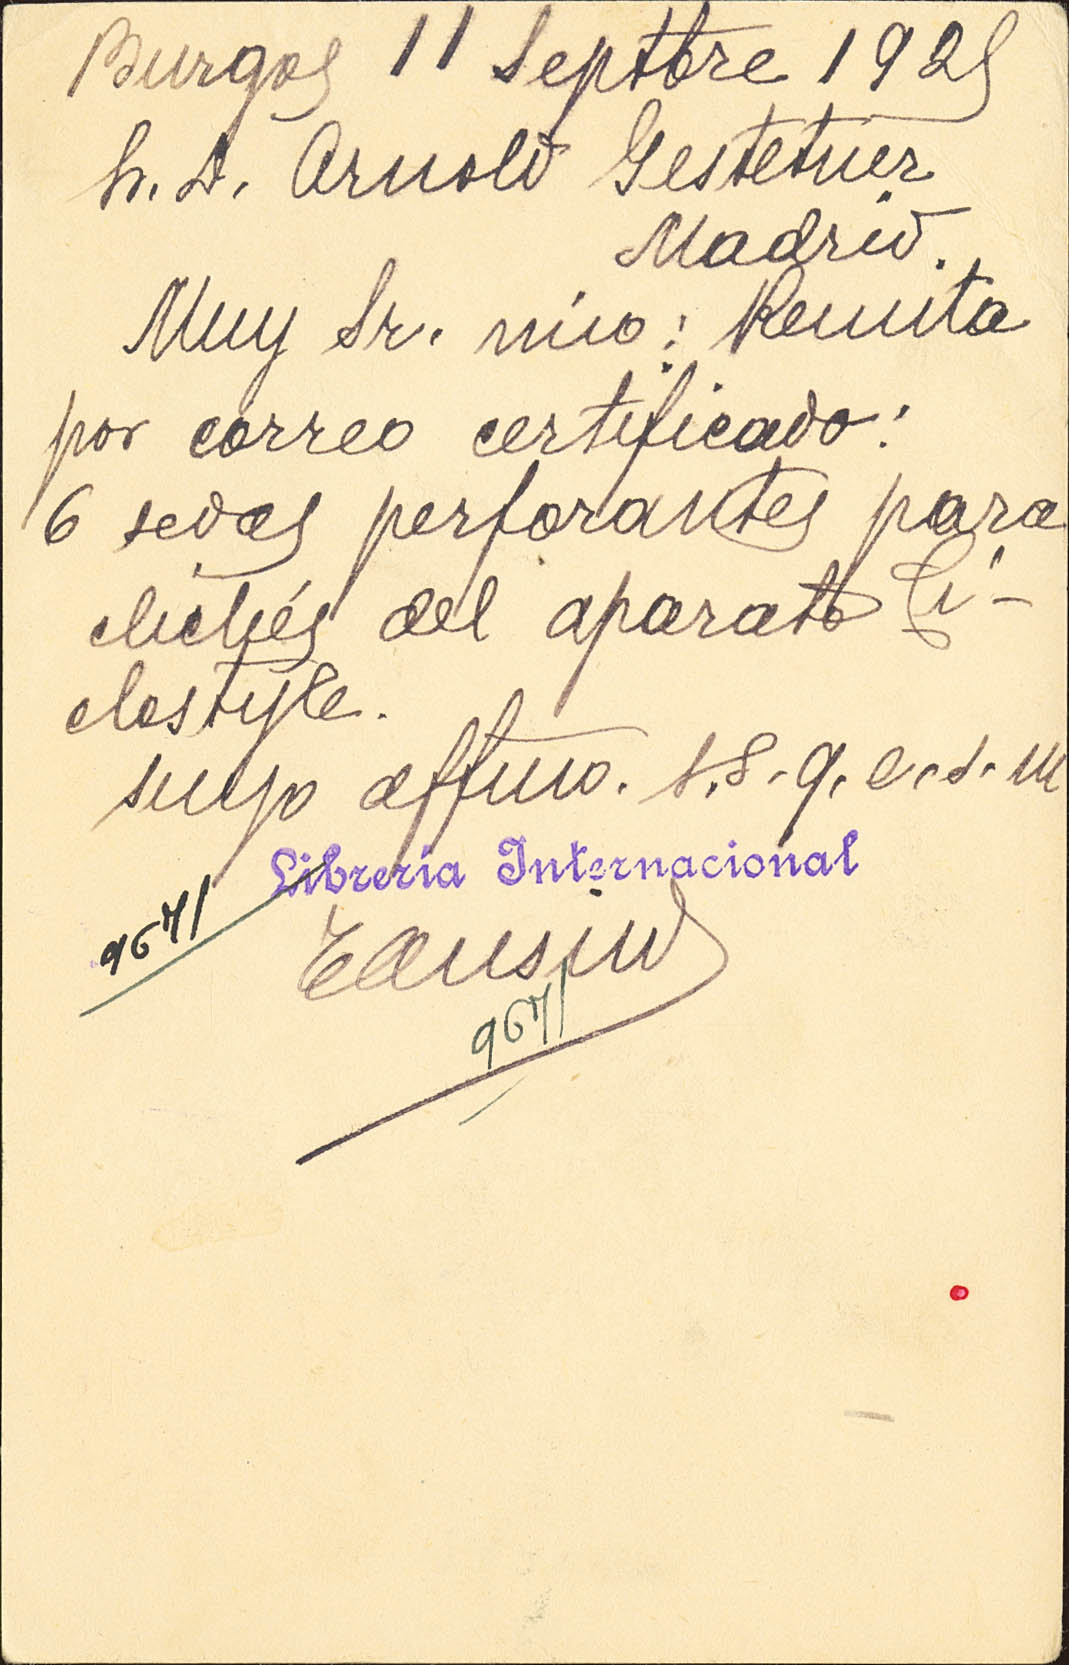 Burgos 11 Septbre 1925
Sr. D. Arnold Gestetner
Madrid.
Muy Sr. mio: Remita
por correo certificado:
6 sedas perforantes para
clichés del aparato Ci-
clostyle.
suyo affmo. s.s.q.e.s.m
Librería Internacional
9671
9671